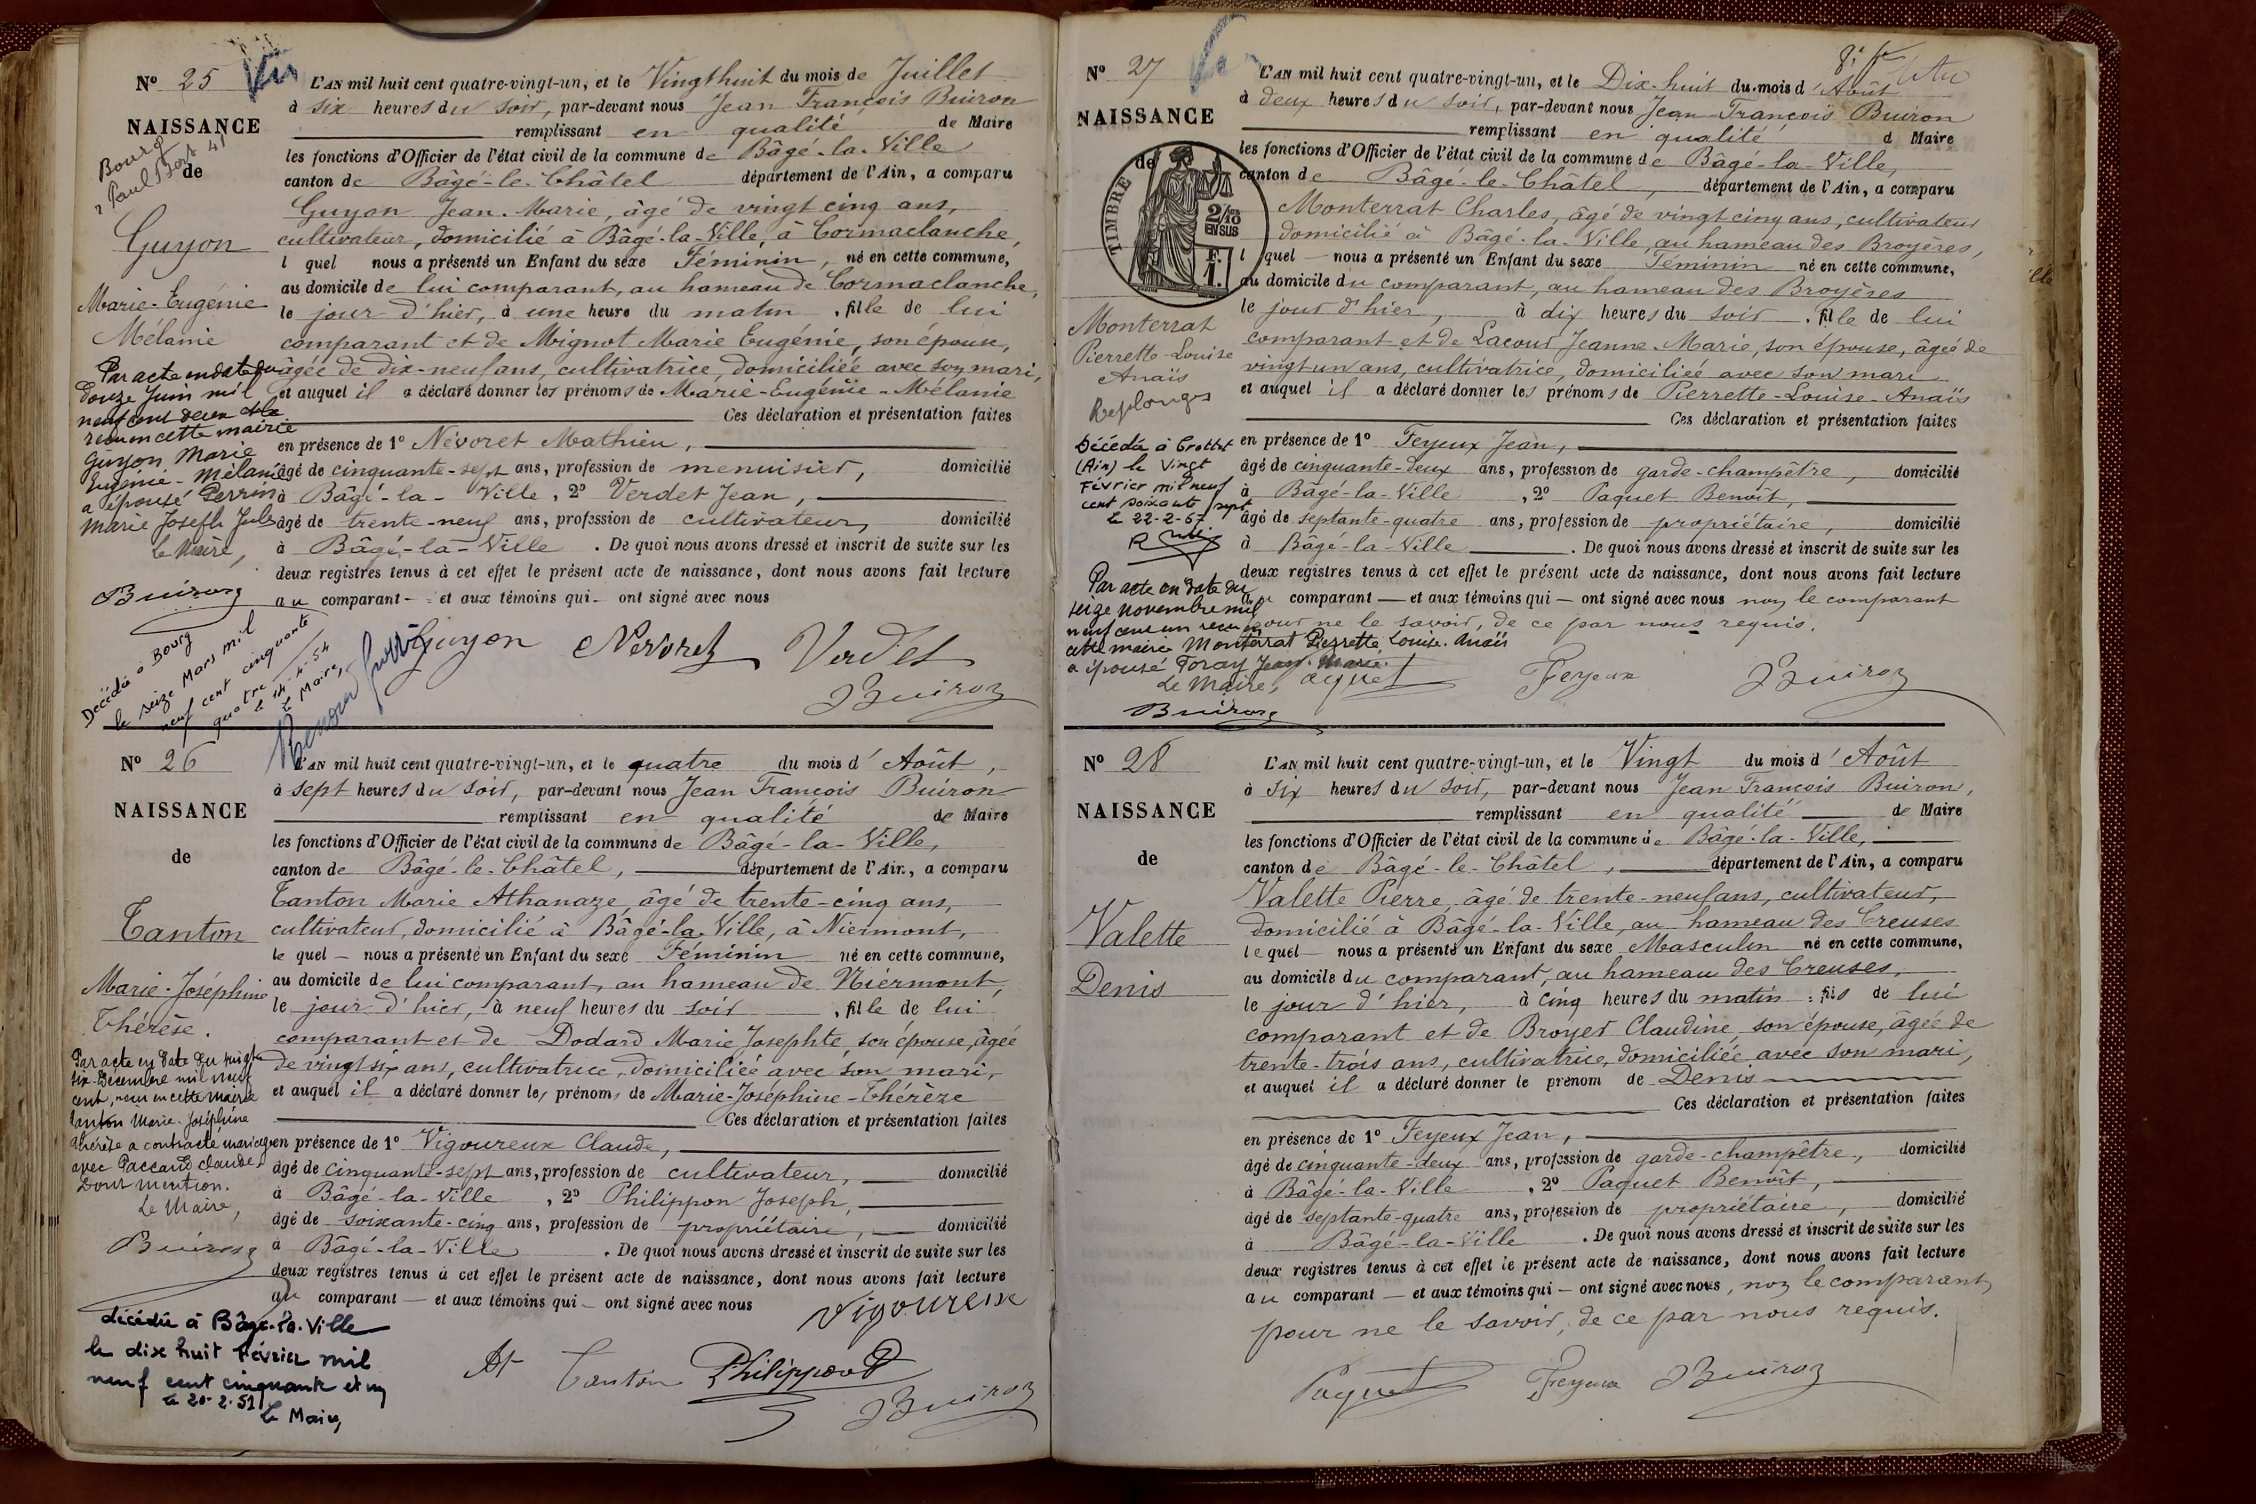 N° 25
NAISSANCE
de
Bourg
r Paul Bert 41
Guyon
Marie-Eugénie
Mélanie
Par acte en date du
douze Juin mil
neuf cent deux
reçu en cette mairie
Guyon Marie
Eugénie - Mélanie
a épousé Perrin
Marie Joseph Jules
Le Maire,
Buiron
Décédée à Bourg
le seize Mars mil
neuf cent cinquante
quatre
le 14-4-54
Le Maire,
L'AN mil huit cent quatre-vingt-un, et le Vingt huit du mois de Juillet
à six heures du soir, par-devant nous Jean François Buiron
remplissant en qualité de Maire
les fonctions d'Officier de l'état civil de la commune de Bâgé-la-Ville
canton de Bâgé-le-Châtel département de l'Ain, a comparu
Guyon Jean-Marie, âgé de vingt cinq ans,
cultivateur, domicilié à Bâgé-la-Ville, à Cormaclanche,
l quel nous a présenté un Enfant du sexe Féminin, né en cette commune,
au domicile de lui comparant, au hameau de Cormaclanche,
le jour d'hier, à une heure du matin, fille de lui
comparant et de Mignot Marie Eugénie, son épouse,
âgée de dix-neuf ans, cultivatrice, domiciliée avec son mari,
et auquel il a déclaré donner les prénoms de Marie-Eugénie-Mélanie
Ces déclaration et présentation faites
en présence de 1° Névoret Mathieu,
âgé de cinquante-sept ans, profession de menuisier, domicilié
à Bâgé-la-Ville, 2° Verdet Jean,
âgé de trente-neuf ans, profession de cultivateur, domicilié
à Bâgé-la-Ville. De quoi nous avons dressé et inscrit de suite sur les
deux registres tenus à cet effet le présent acte de naissance, dont nous avons fait lecture
au comparant - et aux témoins qui - ont signé avec nous
Guyon Nevoret Verdet
JBuiron
N° 26
NAISSANCE
de
Tanton
Marie-Joséphine
Thérèse.
Par acte en date du vingt
six Décembre mil neuf
cent, reçu en cette mairie
Tanton Marie-Joséphine
Thérèse a contracté mariage
avec Paccaud Claude.
Dont mention.
Le Maire,
Buiron
décédée à Bâgé-la-Ville
le dix huit Février mil
neuf cent cinquante et un
le 20-2-51
Le Maire,
L'AN mil huit cent quatre-vingt-un, et le quatre du mois d'Août,
à sept heures du soir, par-devant nous Jean François Buiron
remplissant en qualité de Maire
les fonctions d'Officier de l'état civil de la commune de Bâgé-la-Ville,
canton de Bâgé-le-Châtel, département de l'Ain, a comparu
Tanton Marie Athanaze, âgé de trente-cinq ans,
cultivateur, domicilié à Bâgé-la-Ville, à Niermont,
le quel - nous a présenté un Enfant du sexe Féminin né en cette commune,
au domicile de lui comparant, au hameau de Niermont,
le jour d'hier, à neuf heures du soir, fille de lui
comparant et de Dodard Marie Josephte, son épouse, âgée
de vingt six ans, cultivatrice, domiciliée avec son mari,
et auquel il a déclaré donner les prénoms de Marie-Joséphine-Thérèze
Ces déclaration et présentation faites
en présence de 1° Vigoureux Claude,
âgé de cinquante-sept ans, profession de cultivateur, domicilié
à Bâgé-la-Ville, 2° Philippon Joseph,
âgé de soixante-cinq ans, profession de propriétaire, domicilié
à Bâgé-la-Ville. De quoi nous avons dressé et inscrit de suite sur les
deux registres tenus à cet effet le présent acte de naissance, dont nous avons fait lecture
au comparant - et aux témoins qui - ont signé avec nous
Vigoureux
Tanton Philippon
JBuiron
N° 27
NAISSANCE
de
TIMBRE
2/10 EN SUS
F. 1.
Monterrat
Pierrette-Louise
Anaïs
Replonges
Décédée à Crottet
(Ain) le Vingt
Février mil neuf
cent soixante sept
le 22-2-67
Par acte en date du
seize novembre mil
neuf cent un reçu en
cette mairie Monterrat Pierrette Louise-Anaïs
a épousé Foray Jean-Marie.
Le Maire,
Buiron
L'AN mil huit cent quatre-vingt-un, et le Dix-huit du mois d'Août
à deux heures du soir, par-devant nous Jean-François Buiron
remplissant en qualité d Maire
les fonctions d'Officier de l'état civil de la commune de Bâgé-la-Ville,
canton de Bâgé-le-Châtel, département de l'Ain, a comparu
Monterrat Charles, âgé de vingt cinq ans, cultivateur
domicilié à Bâgé-la-Ville, au hameau des Broyères,
l quel - nous a présenté un Enfant du sexe Féminin né en cette commune,
au domicile du comparant, au hameau des Broyères
le jour d'hier, à dix heures du soir. fille de lui
comparant et de Lacour Jeanne-Marie, son épouse, âgée de
vingt un ans, cultivatrice, domiciliée avec son mari
et auquel il a déclaré donner les prénoms de Pierrette-Louise-Anaïs
Ces déclaration et présentation faites
en présence de 1° Feyeux Jean,
âgé de cinquante-deux ans, profession de garde-champêtre, domicilié
à Bâgé-la-Ville, 2° Paquet Benoît,
âgé de septante-quatre ans, profession de propriétaire, domicilié
à Bâgé-la-Ville. De quoi nous avons dressé et inscrit de suite sur les
deux registres tenus à cet effet le présent acte de naissance, dont nous avons fait lecture
au comparant - et aux témoins qui - ont signé avec nous non le comparant
pour ne le savoir, de ce par nous requis.
Paquet Feyeux JBuiron
N° 28
NAISSANCE
de
Valette
Denis
L'AN mil huit cent quatre-vingt-un, et le Vingt du mois d'Août
à six heures du soir, par-devant nous Jean François Buiron,
remplissant en qualité de Maire
les fonctions d'Officier de l'état civil de la commune de Bâgé-la-Ville,
canton de Bâgé-le-Châtel, département de l'Ain, a comparu
Valette Pierre, âgé de trente-neuf ans, cultivateur,
domicilié à Bâgé-la-Ville, au hameau des Creuses
lequel - nous a présenté un Enfant du sexe Masculin né en cette commune,
au domicile du comparant, au hameau des Creuses,
le jour d'hier, à cinq heures du matin : fils de lui
comparant et de Broyer Claudine, son épouse, âgée de
trente-trois ans, cultivatrice, domiciliée avec son mari,
et auquel il a déclaré donner le prénom de Denis
Ces déclaration et présentation faites
en présence de 1° Feyeux Jean,
âgé de cinquante-deux ans, profession de garde-champêtre, domicilié
à Bâgé-la-Ville, 2° Paquet Benoît,
âgé de septante-quatre ans, profession de propriétaire, domicilié
à Bâgé-la-Ville. De quoi nous avons dressé et inscrit de suite sur les
deux registres tenus à cet effet le présent acte de naissance, dont nous avons fait lecture
au comparant - et aux témoins qui - ont signé avec nous, non le comparant,
pour ne le savoir, de ce par nous requis.
Paquet Feyeux JBuiron